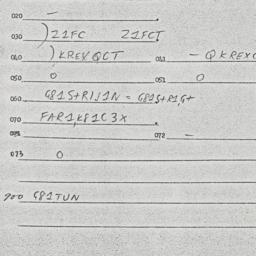 020 –
030 )21FC 21FCT
040 )KREVQCT 041 – QKREXC
050 0 051 0
060 G81S+RIJ1N = G81S+R1,G+
070 FAR1,K81C3X
071 072 –
073 0
900 G81TUN